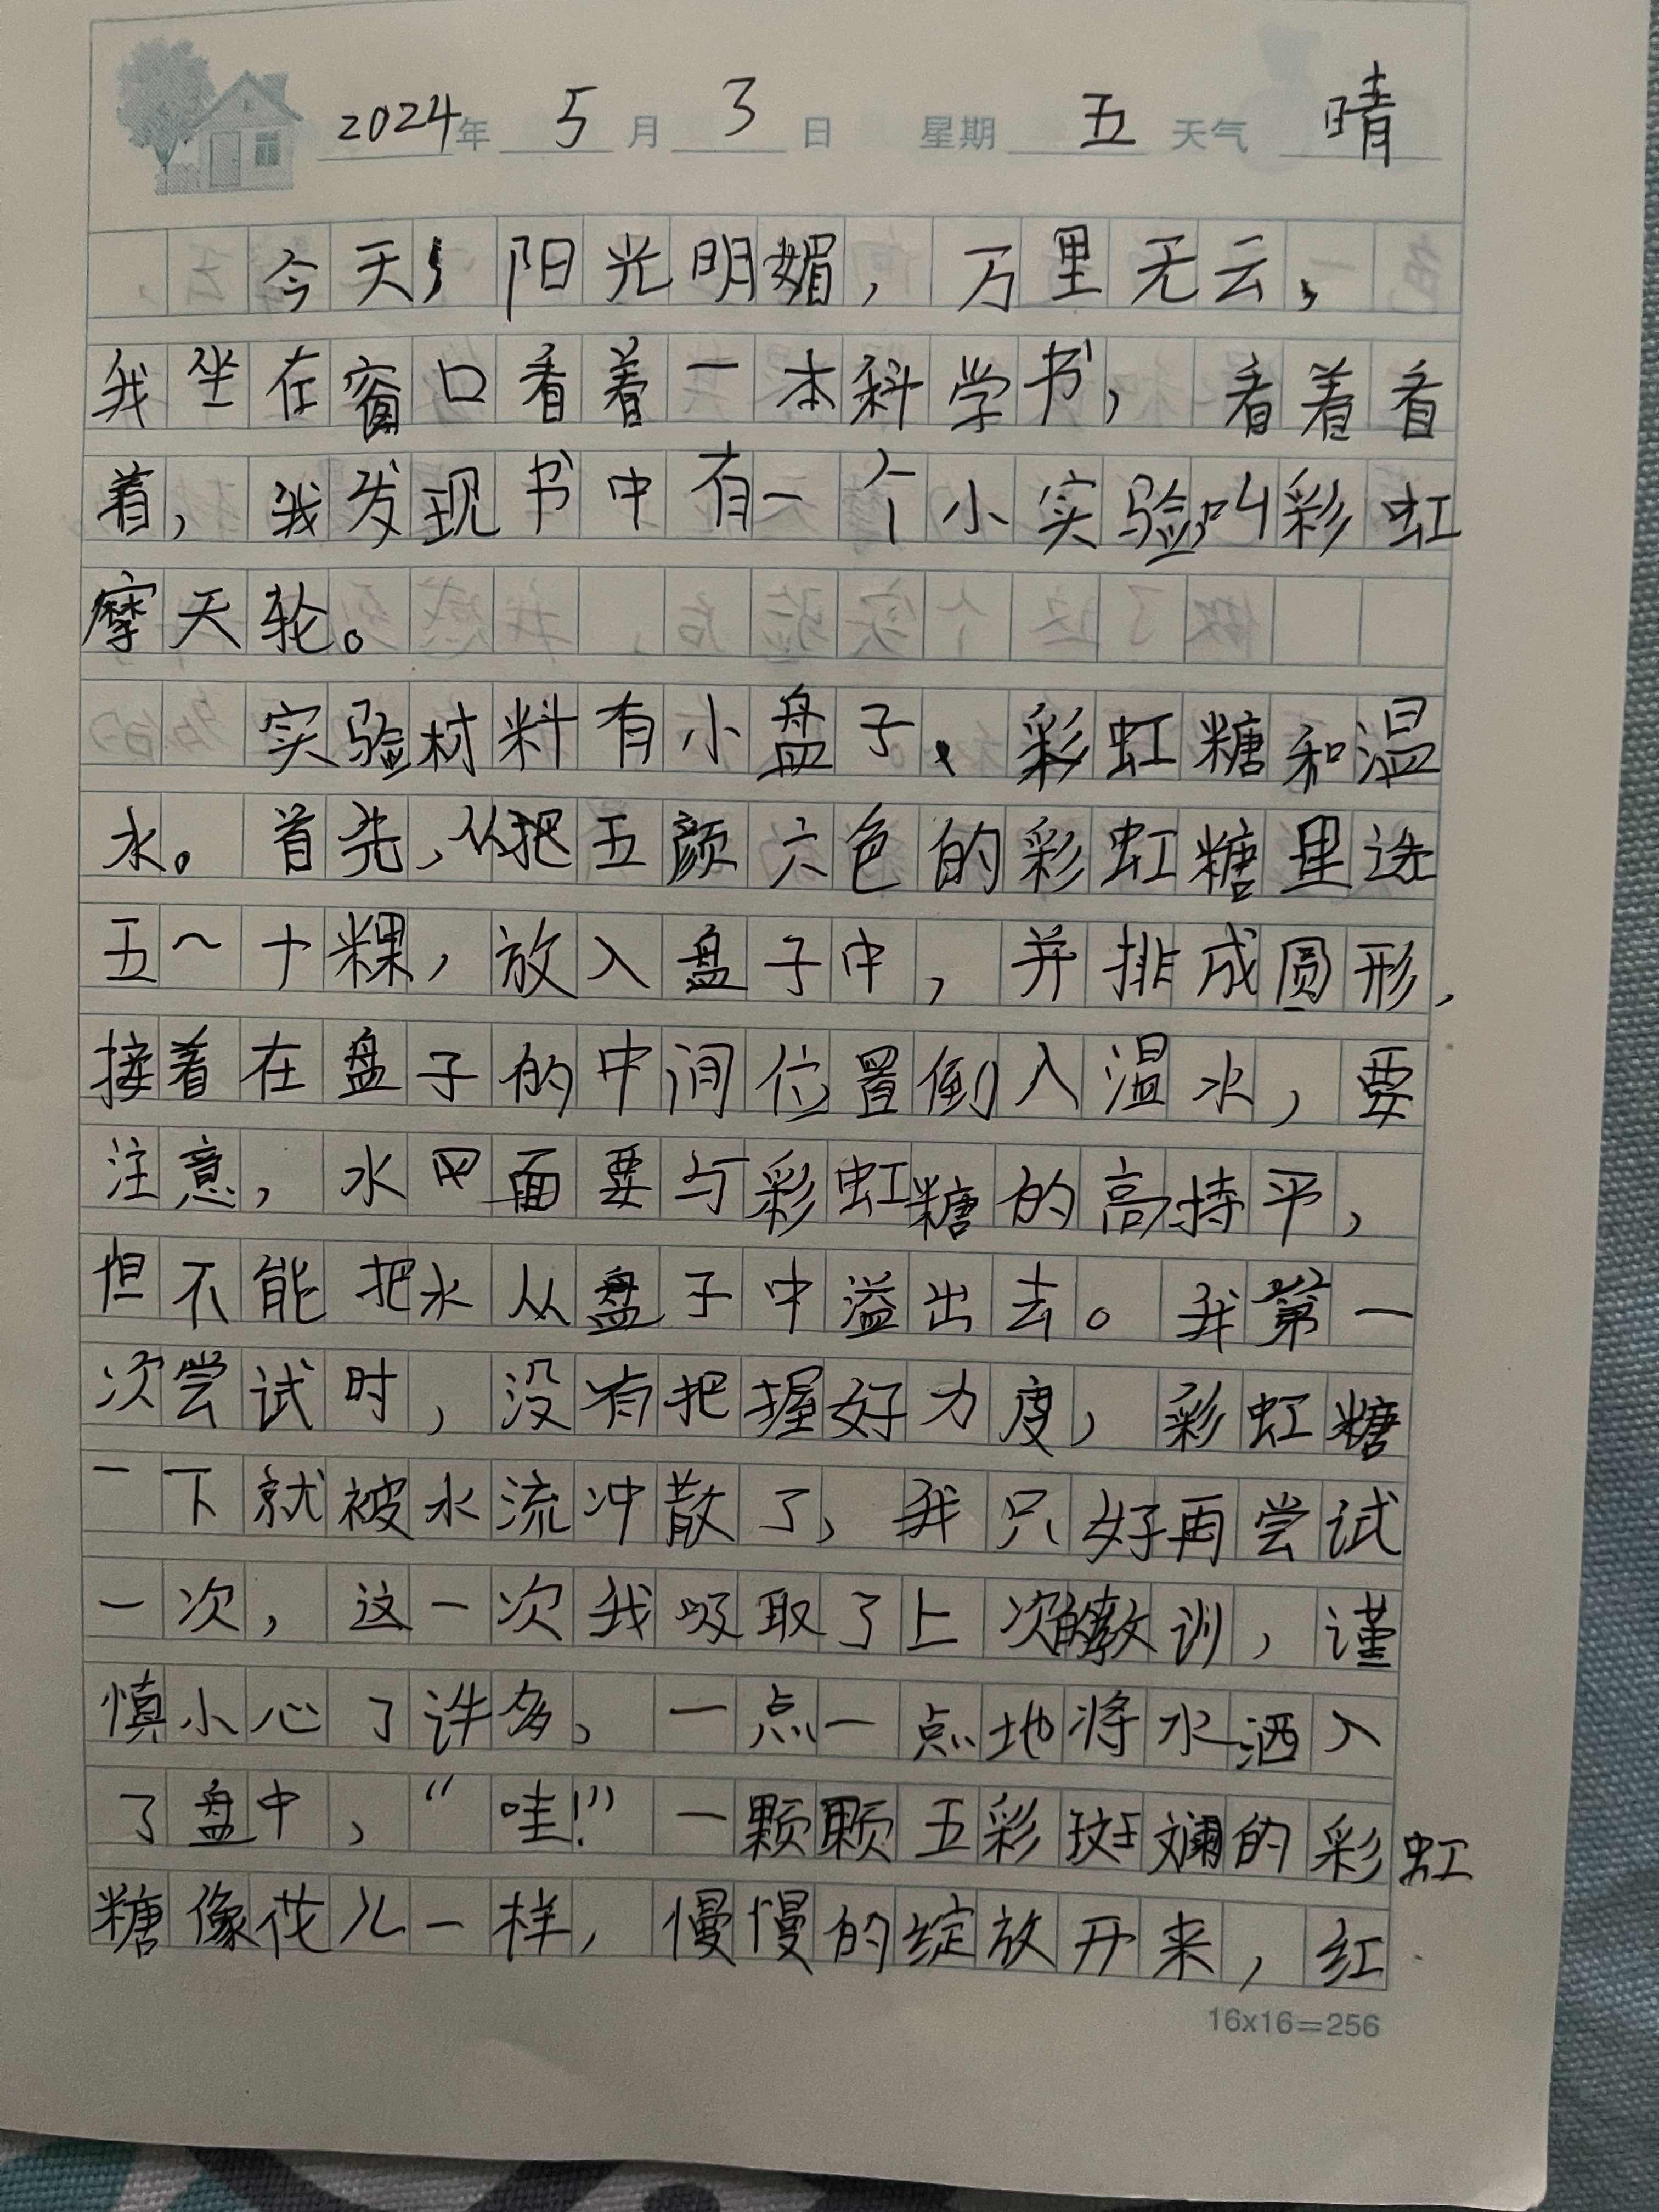 2024年 5月 3日 星期 五 天气 晴
今天，阳光明媚，万里无云，
我坐在窗口看着一本科学书，看着看
着，我发现书中有一个小实验叫彩虹
摩天轮。
实验材料有小盘子、彩虹糖和温
水。首先，从把五颜六色的彩虹糖里选
五～十粿，放入盘子中，并排成圆形，
接着在盘子的中间位置倒入温水，要
注意，水平面要与彩虹糖的高持平，
但不能把水从盘子中溢出去。我第一
次尝试时，没有把握好力度，彩虹糖
一下就被水流冲散了，我只好再尝试
一次，这一次我吸取了上次的教训，谨
慎小心了许多，一点一点地将水洒入
了盘中，“哇！”一颗颗五彩斑斓的彩虹
糖像花儿一样，慢慢的绽放开来，红
16x16=256